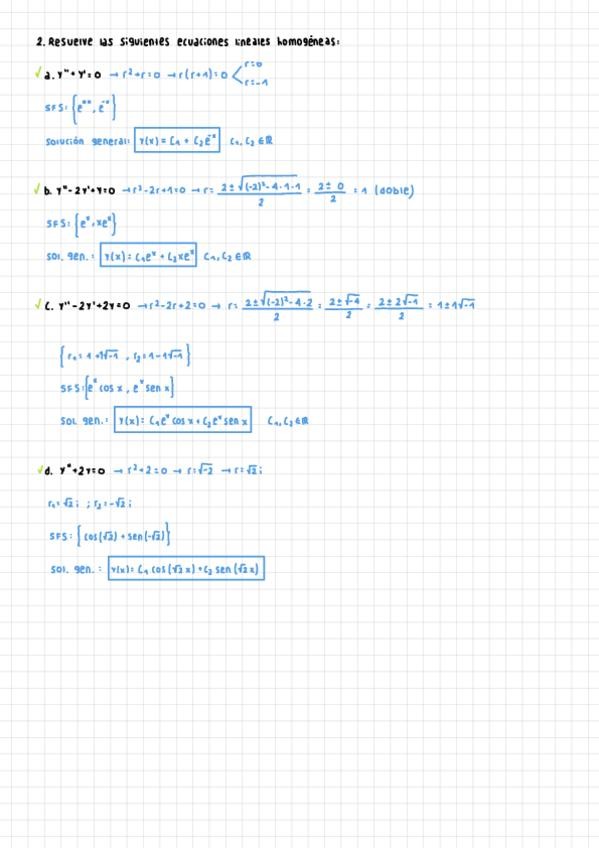 2. Resuelve las siguientes ecuaciones lineales homogéneas:
✓ a. y'' + y' = 0 → r² + r = 0 → r(r+1) = 0 < r=0 r=-1
SFS: {e⁰ˣ, e⁻ˣ}
Solución general: y(x) = C₁ + C₂e⁻ˣ C₁, C₂ ∈ ℝ
✓ b. y'' - 2y' + y = 0 → r² - 2r + 1 = 0 → r = (2 ± √((-2)² - 4·1·1))/2 = (2 ± 0)/2 = 1 (doble)
SFS: {eˣ, xeˣ}
sol. gen.: y(x) = C₁eˣ + C₂xeˣ C₁, C₂ ∈ ℝ
✓ c. y'' - 2y' + 2y = 0 → r² - 2r + 2 = 0 → r = (2 ± √((-2)² - 4·2))/2 = (2 ± √-4)/2 = (2 ± 2√-1)/2 = 1 ± 1√-1
{r₁ = 1 + 1√-1, r₂ = 1 - 1√-1}
SFS: {eˣ cos x, eˣ sen x}
sol gen.: y(x) = C₁eˣ cos x + C₂eˣ sen x C₁, C₂ ∈ ℝ
✓ d. y'' + 2y = 0 → r² + 2 = 0 → r = √-2 → r = √2 i
r₁ = √2 i ; r₂ = -√2 i
SFS: {cos(√2) + sen(-√2)}
sol. gen.: y(x) = C₁ cos(√2 x) + C₂ sen(√2 x)